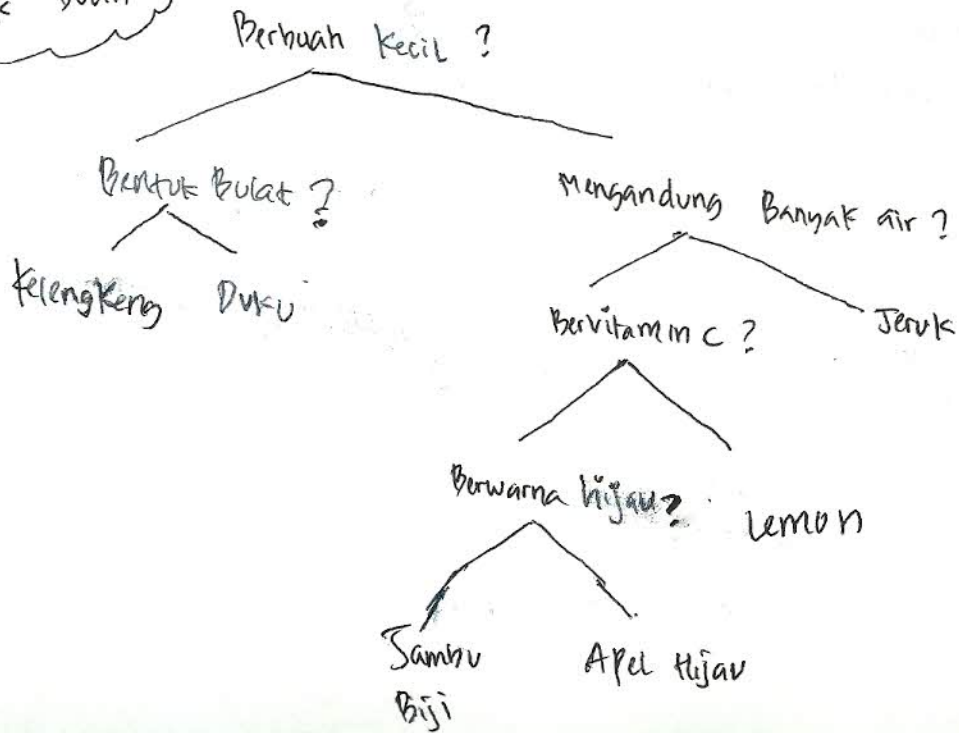 Berbuah Kecil ?
Bentuk Bulat ?
Mengandung Banyak air ?
Kelengkeng
Duku
Bervitamin C ?
Jeruk
Berwarna hijau ?
Lemon
Jambu
Biji
Apel Hijau